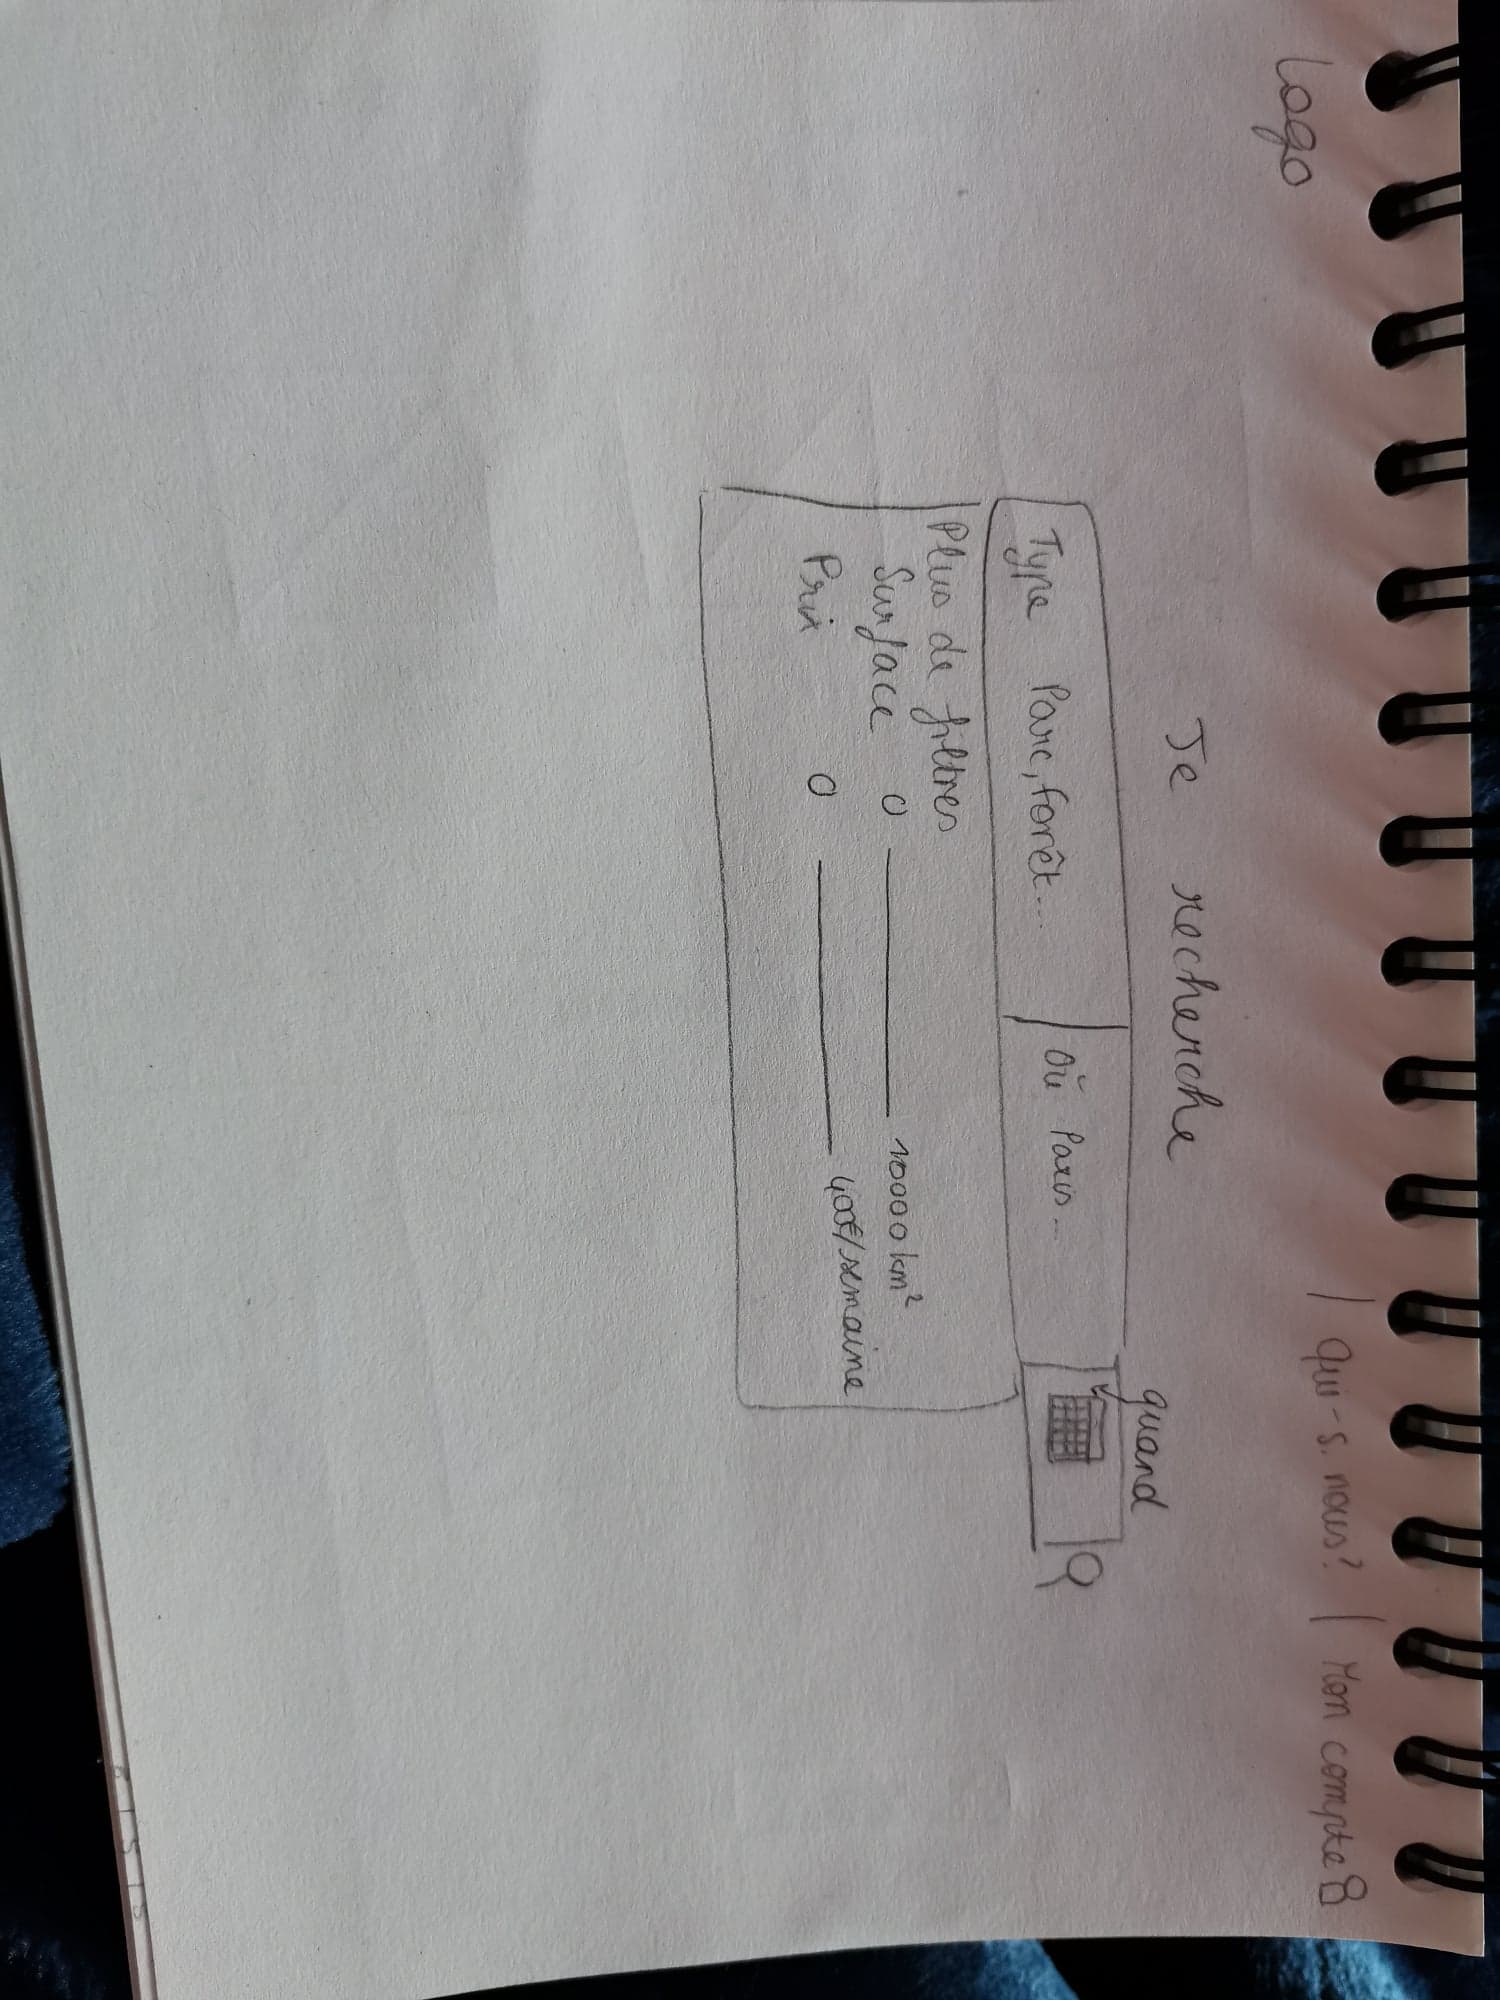 Logo
| Qui-s. nous? | Mon compte
Je recherche
quand
Type Parc, forêt... Où Paris...
Plus de filtres
Surface 0 10000 km²
Prix 0 400€/semaine